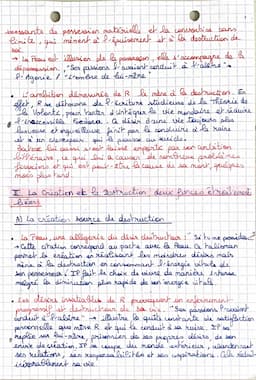 incessante de possession matérielle et la convoitise sans
limite, qui mènent à l'épuisement et à la destruction de
soi.
→ La Peau est illusion de la possession, elle s'accompagne de la
dépossession. "Ses passions l'avaient conduit à l'abîme" →
l'Agonie / "L'ombre de lui-même"
• L'ambition démesurée de R le mène à la destruction. En
effet, R se détourne de l'écriture studieuse de sa Théorie de
la Volonté, pour tenter d'intégrer la vie mondaine et séduire
Foedora. Le désir d'une vie toujours plus
luxueuse et fini par le conduire à la ruine
et à un désespoir qui le pousse au suicide.
Balzac lui aussi s'est laissé emporter par son ambition
littéraire, ce qui lui a causé de nombreux problèmes
financiers et qui est peut-être la cause de sa mort, quelques
mois plus tard.
II La création et la destruction deux forces étroitement
liées
A) La création source de destruction
• La Peau, une allégorie du désir destructeur : "Si tu me possèdes"
→ Cette citation correspond au pacte avec la Peau. Ce talisman
permet la création en réalisant les moindres désirs mais
mène à la destruction en consommant l'énergie vitale de
son possesseur. Il fait le choix de vivre de manière intense
malgré la diminution plus rapide de son énergie vitale.
• Les désirs insatiables de R provoquent un enfermement
progressif et destructeur de sa vie. "Ses passions l'avaient
conduit à l'abîme" → illustre la quête constante de satisfaction
personnelle que mène R et qui le conduit à sa ruine. Il se
replie sur lui-même, prisonnier de ses propres désirs, de son
envie de création. Il se coupe du monde extérieur, abandonnant
ses relations, ses responsabilités et ses aspirations. Cela réduit
inexorablement sa vie.